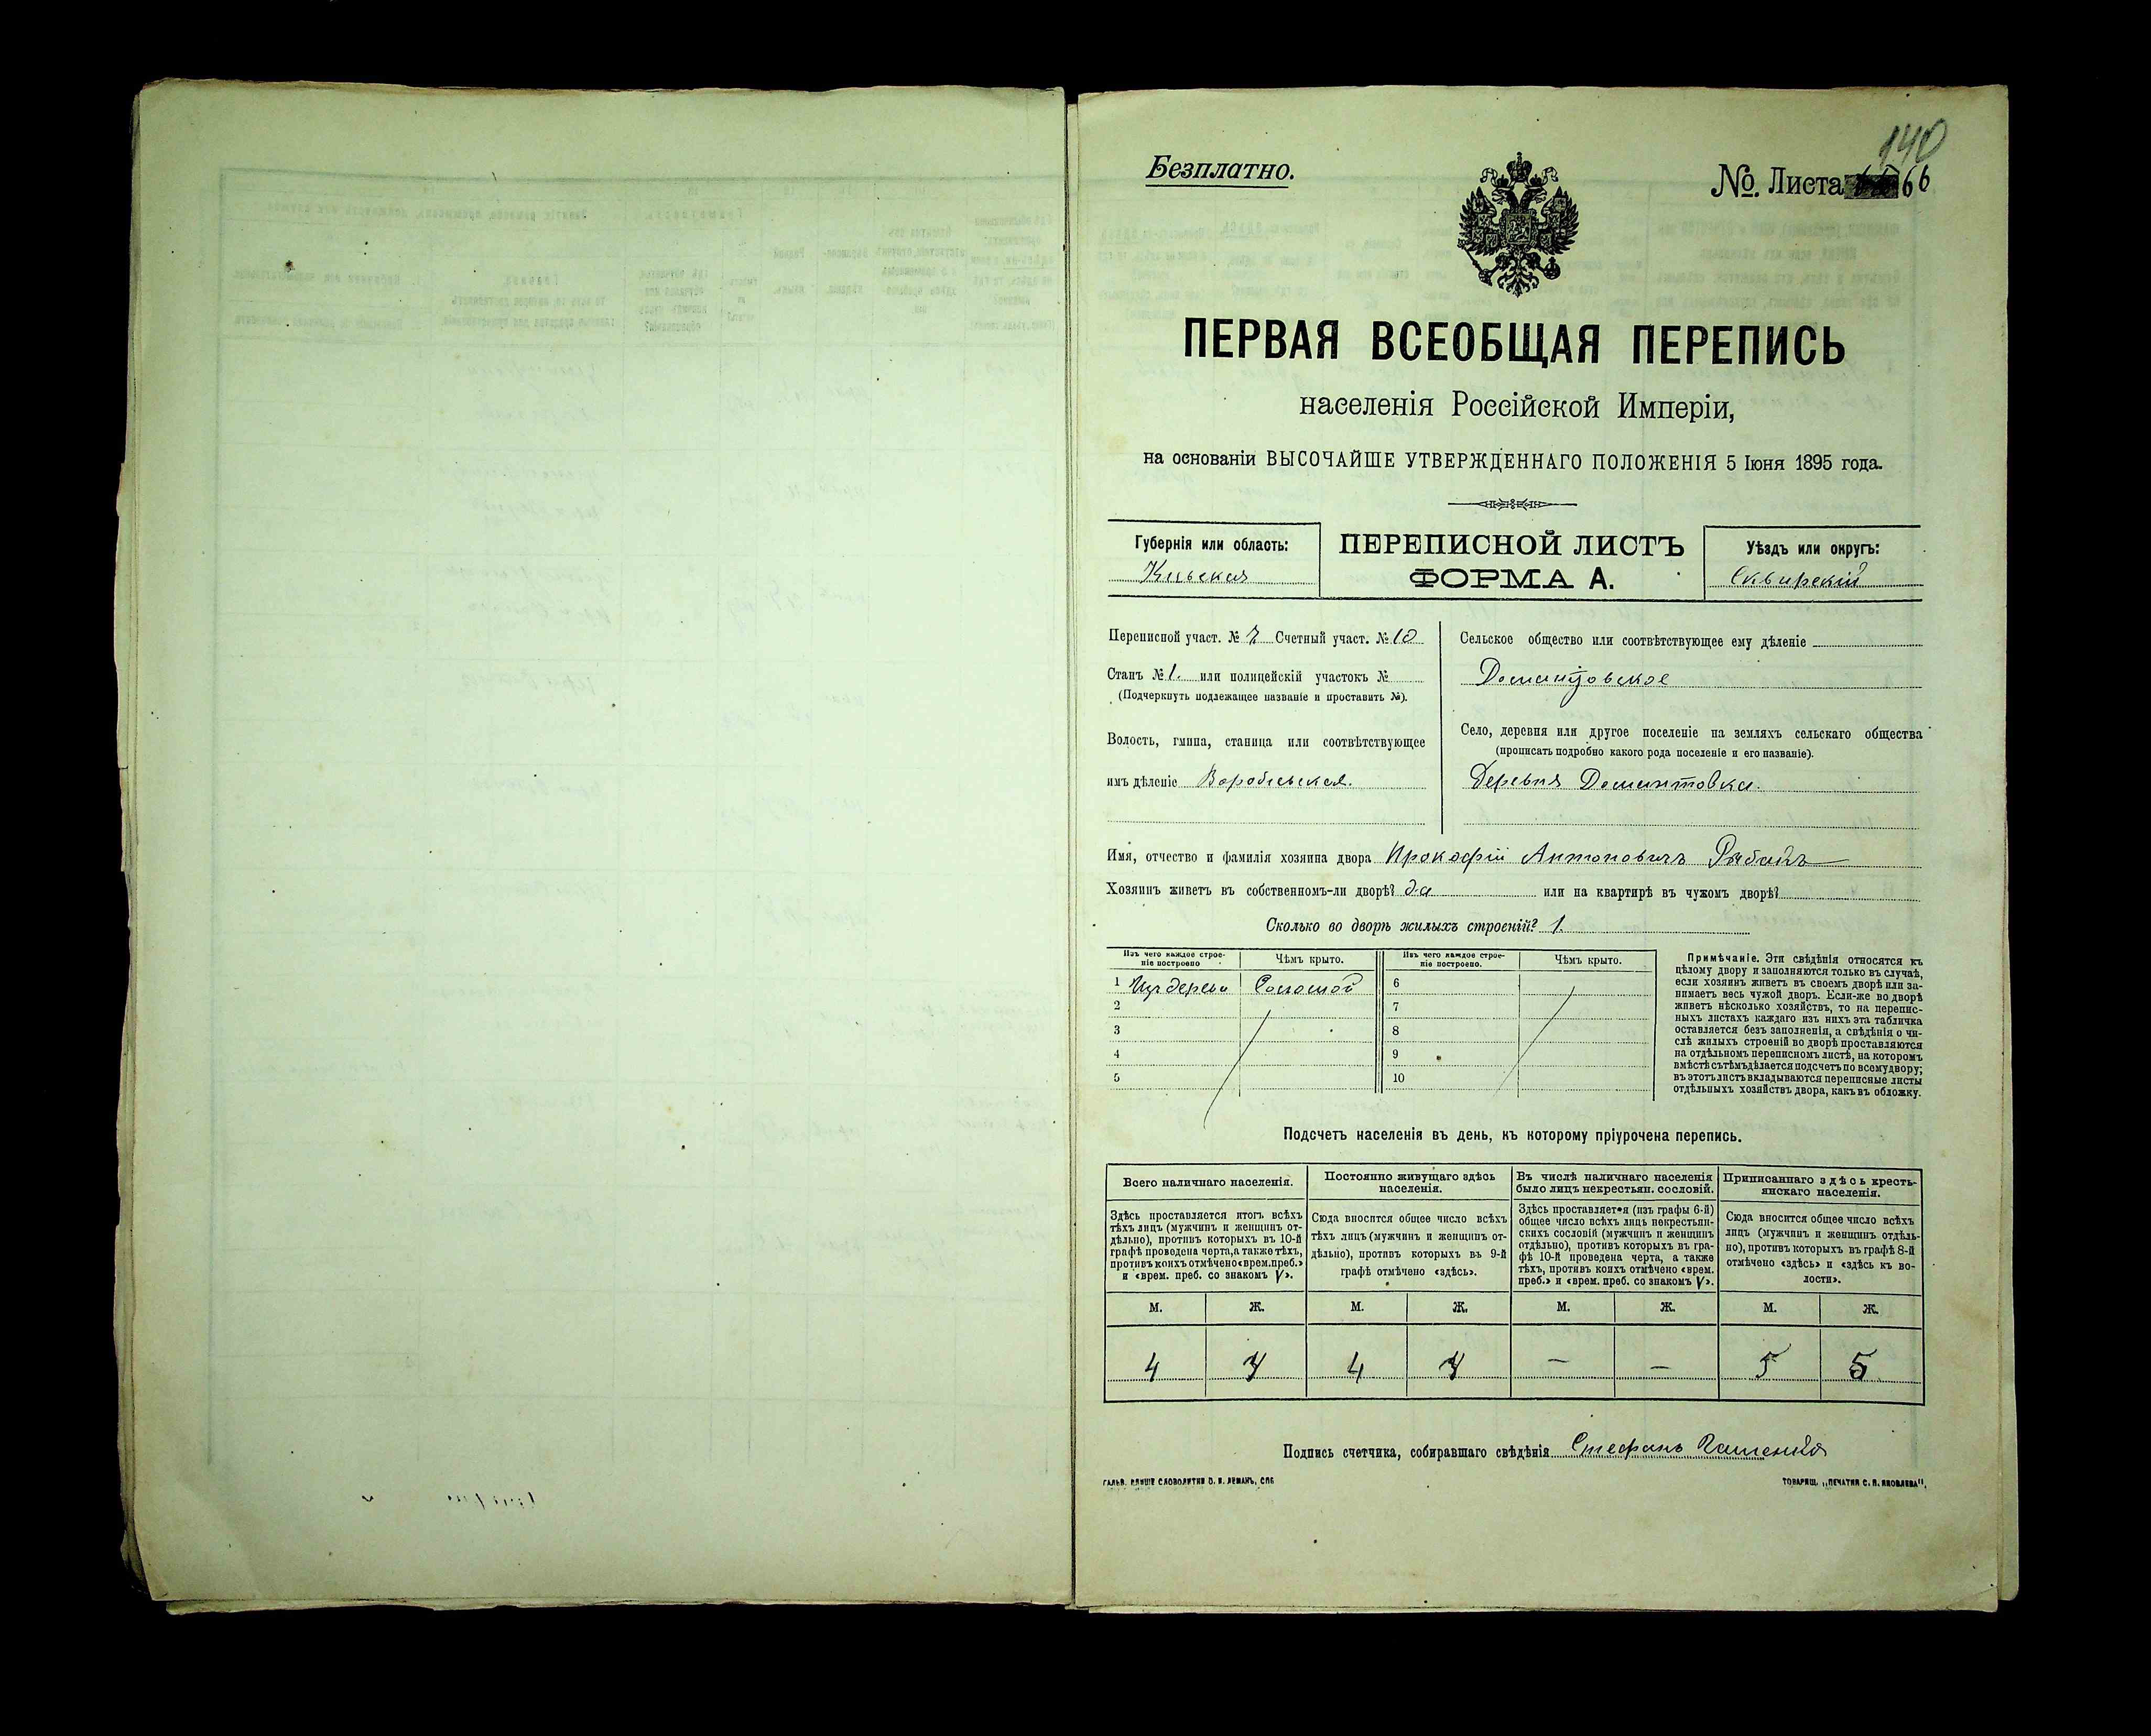 140
Безплатно.
№. Листа 66
ПЕРВАЯ ВСЕОБЩАЯ ПЕРЕПИСЬ
населенія Россійской Имперіи,
на основаніи ВЫСОЧАЙШЕ УТВЕРЖДЕННАГО ПОЛОЖЕНІЯ 5 Іюня 1895 года.
Губернія или область:
Кіевская
ПЕРЕПИСНОЙ ЛИСТЪ
ФОРМА А.
Уѣздъ или округъ:
Сквирскій
Переписной участ. № 7 Счетный участ. № 10
Станъ № 1. или полицейскій участокъ №
(Подчеркнуть подлежащее названіе и проставить №).
Волость, гмина, станица или соотвѣтствующее
имъ дѣленіе Воробіевская.
Сельское общество или соотвѣтствующее ему дѣленіе
Домантовское
Село, деревня или другое поселеніе на земляхъ сельскаго общества
(прописать подробно какого рода поселеніе и его названіе).
Деревня Домантовка.
Имя, отчество и фамилія хозяина двора Прокофій Антоновичъ
Хозяинъ живетъ въ собственномъ-ли дворѣ? да или на квартирѣ въ чужомъ дворѣ?
Сколько во дворѣ жилыхъ строеній? 1.
Изъ чего каждое строе-
ніе построено
Чѣмъ крыто.
Изъ чего каждое строе-
ніе построено.
Чѣмъ крыто.
1 Изъ дерева Соломой 6
2 7
3 8
4 9
5 10
Примѣчаніе. Эти свѣдѣнія относятся къ
цѣлому двору и заполняются только въ случаѣ,
если хозяинъ живетъ въ своемъ дворѣ или за-
нимаетъ весь чужой дворъ. Если-же во дворѣ
живетъ нѣсколько хозяйствъ, то на перепис-
ныхъ листахъ каждаго изъ нихъ эта табличка
оставляется безъ заполненія, а свѣдѣнія о чи-
слѣ жилыхъ строеній во дворѣ проставляются
на отдѣльномъ переписномъ листѣ, на которомъ
вмѣстѣ съ тѣмъ дѣлается подсчетъ по всему двору;
въ этотъ листъ вкладываются переписные листы
отдѣльныхъ хозяйствъ двора, какъ въ обложку.
Подсчетъ населенія въ день, къ которому пріурочена перепись.
Всего наличнаго населенія.
Здѣсь проставляется итогъ всѣхъ
тѣхъ лицъ (мужчинъ и женщинъ от-
дѣльно), противъ которыхъ въ 10-й
графѣ проведена черта, а также тѣхъ,
противъ коихъ отмѣчено «врем. преб.»
и «врем. преб. со знакомъ V».
Постоянно живущаго здѣсь
населенія.
Сюда вносится общее число всѣхъ
тѣхъ лицъ (мужчинъ и женщинъ от-
дѣльно), противъ которыхъ въ 9-й
графѣ отмѣчено «здѣсь».
Въ числѣ наличнаго населенія
было лицъ некрестьян. сословій.
Здѣсь проставляется (изъ графы 6-й)
общее число всѣхъ лицъ некрестьян-
скихъ сословій (мужчинъ и женщинъ
отдѣльно), противъ которыхъ въ гра-
фѣ 10-й проведена черта, а также
тѣхъ, противъ коихъ отмѣчено «врем.
преб.» и «врем. преб. со знакомъ V».
Приписаннаго здѣсь кресть-
янскаго населенія.
Сюда вносится общее число всѣхъ
лицъ (мужчинъ и женщинъ отдѣль-
но), противъ которыхъ въ графѣ 8-й
отмѣчено «здѣсь» и «здѣсь къ во-
лости».
М. Ж. М. Ж. М. Ж. М. Ж.
4 4 — — 5 5
Подпись счетчика, собиравшаго свѣдѣнія Стефанъ
ГАЛЬВ. КЛИШЕ СЛОВОЛИТНИ О. И. ЛЕМАНЪ, СПБ
ТОВАРИЩ. „ПЕЧАТНЯ С. П. ЯКОВЛЕВА“.